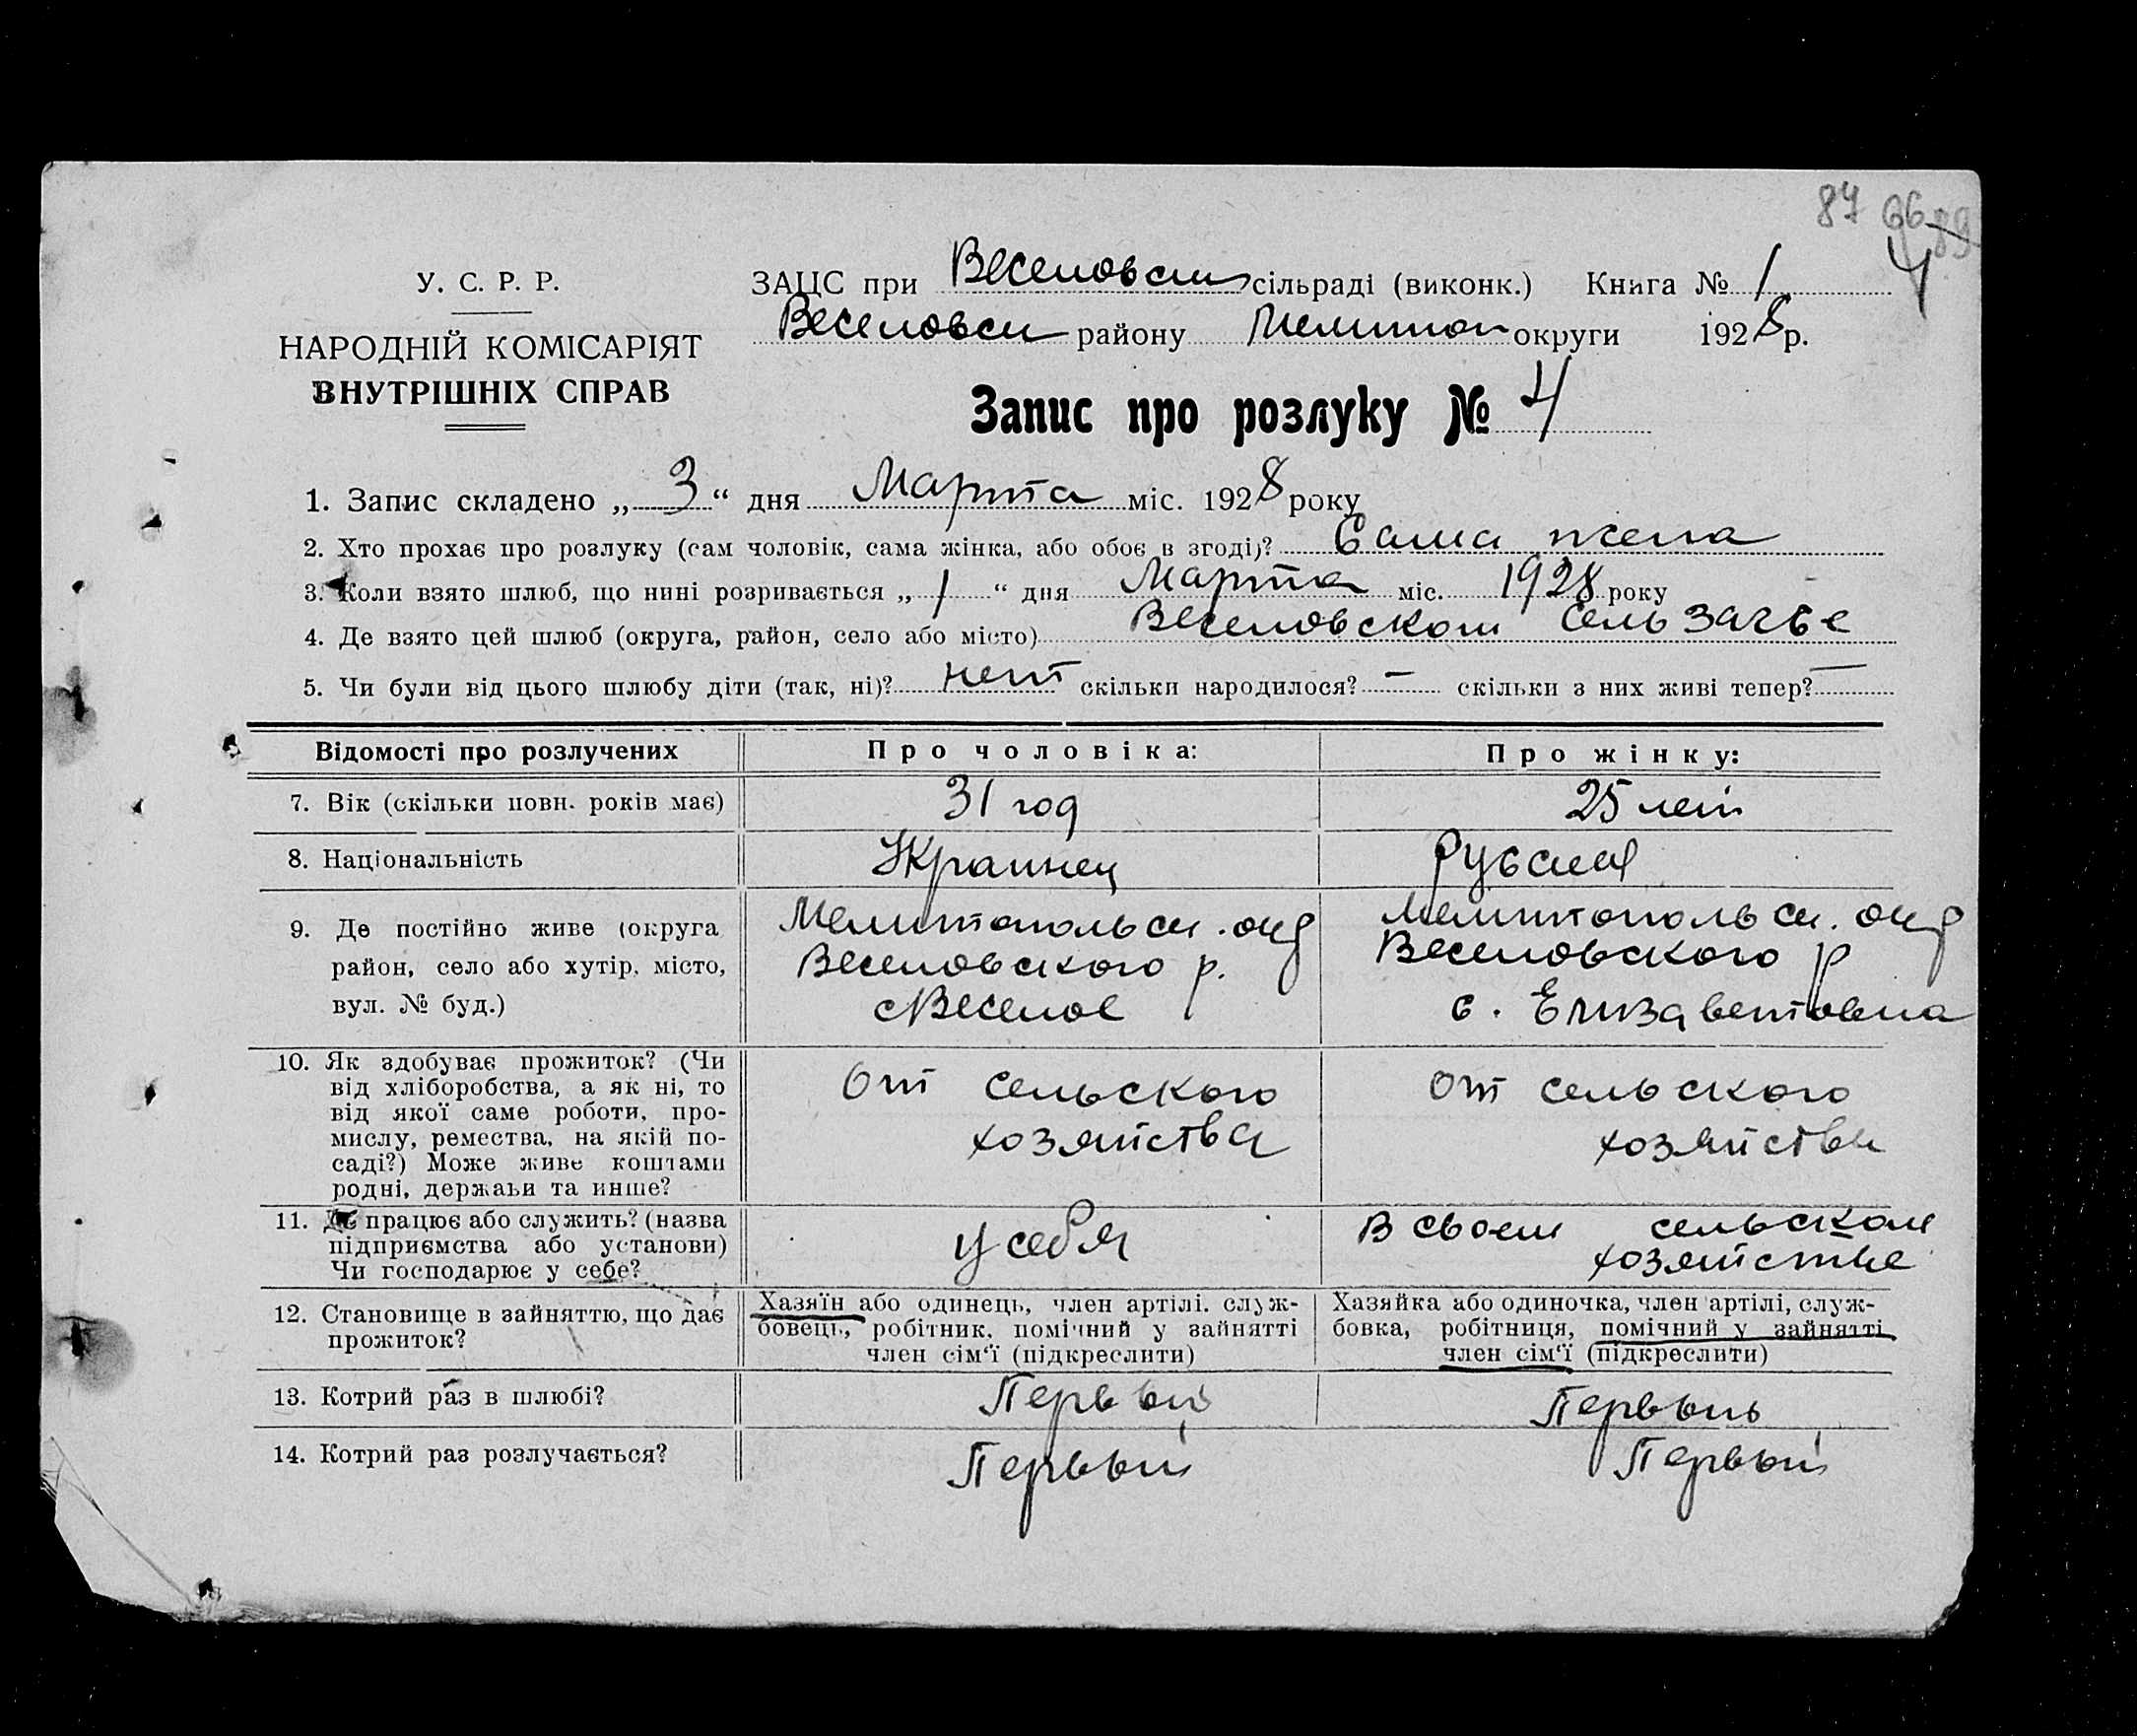 87 66 89
У. С. Р. Р.
НАРОДНІЙ КОМІСАРІЯТ
ВНУТРІШНІХ СПРАВ
ЗАЦС при Веселовск сільраді (виконк.) Книга № 1 4
Веселовск району Мелитоп округи 1928 р.
Запис про розлуку № 4
1. Запис складено „ 3 “ дня Марта міс. 1928 року
2. Хто прохає про розлуку (сам чоловік, сама жінка, або обоє в згоді)? Сама жена
3. Коли взято шлюб, що нині розривається „ 1 “ дня Марта міс. 1928 року
4. Де взято цей шлюб (округа, район, село або місто) Веселовском сельзагсе
5. Чи були від цього шлюбу діти (так, ні)? нет скільки народилося? — скільки з них живі тепер? —
Відомості про розлучених Про чоловіка: Про жінку:
7. Вік (скільки повн. років має) 31 год 25 лет
8. Національність Украинец Русская
9. Де постійно живе (округа Мелитопольск. окр Мелитопольск. окр
район, село або хутір, місто, Веселовского р. Веселовского р
вул. № буд.) с Веселое с. Елизаветовка
10. Як здобуває прожиток? (Чи
від хліборобства, а як ні, то От сельского От сельского
від якої саме роботи, про-
мислу, ремества, на якій по- хозяйства хозяйства
саді?) Може живе коштами
родні, держави та инше?
11. Де працює або служить? (назва В своем сельском
підприємства або установи) у себя хозяйстве
Чи господарює у себе?
12. Становище в зайняттю, що дає Хазяїн або одинець, член артілі, служ- Хазяйка або одиночка, член артілі, служ-
прожиток? бовець, робітник, помічний у зайнятті бовка, робітниця, помічний у зайнятті
член сім‘ї (підкреслити) член сім‘ї (підкреслити)
13. Котрий раз в шлюбі? Первый Первый
14. Котрий раз розлучається? Первый Первый